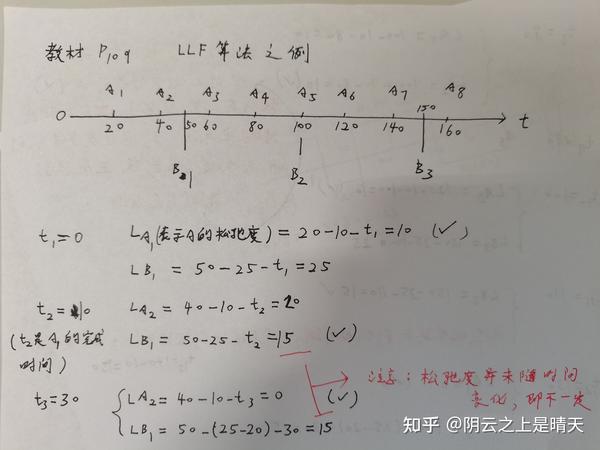 教材 P109 LLF 算法之例
A1 A2 A3 A4 A5 A6 A7 A8
0 20 40 50 60 80 100 120 140 150 160 t
B1 B2 B3
t1=0 LA1(表示A的松弛度) = 20-10-t1=10 (✓)
LB1 = 50-25-t1=25
t2=10 LA2 = 40-10-t2=20
(t2是A1的完成时间) LB1 = 50-25-t2=15 (✓)
t3=30 LA2 = 40-10-t3=0 (✓)
LB1 = 50-(25-20)-30=15
注意：松弛度并未随时间
变化，即不一定
知乎 @阴云之上是晴天